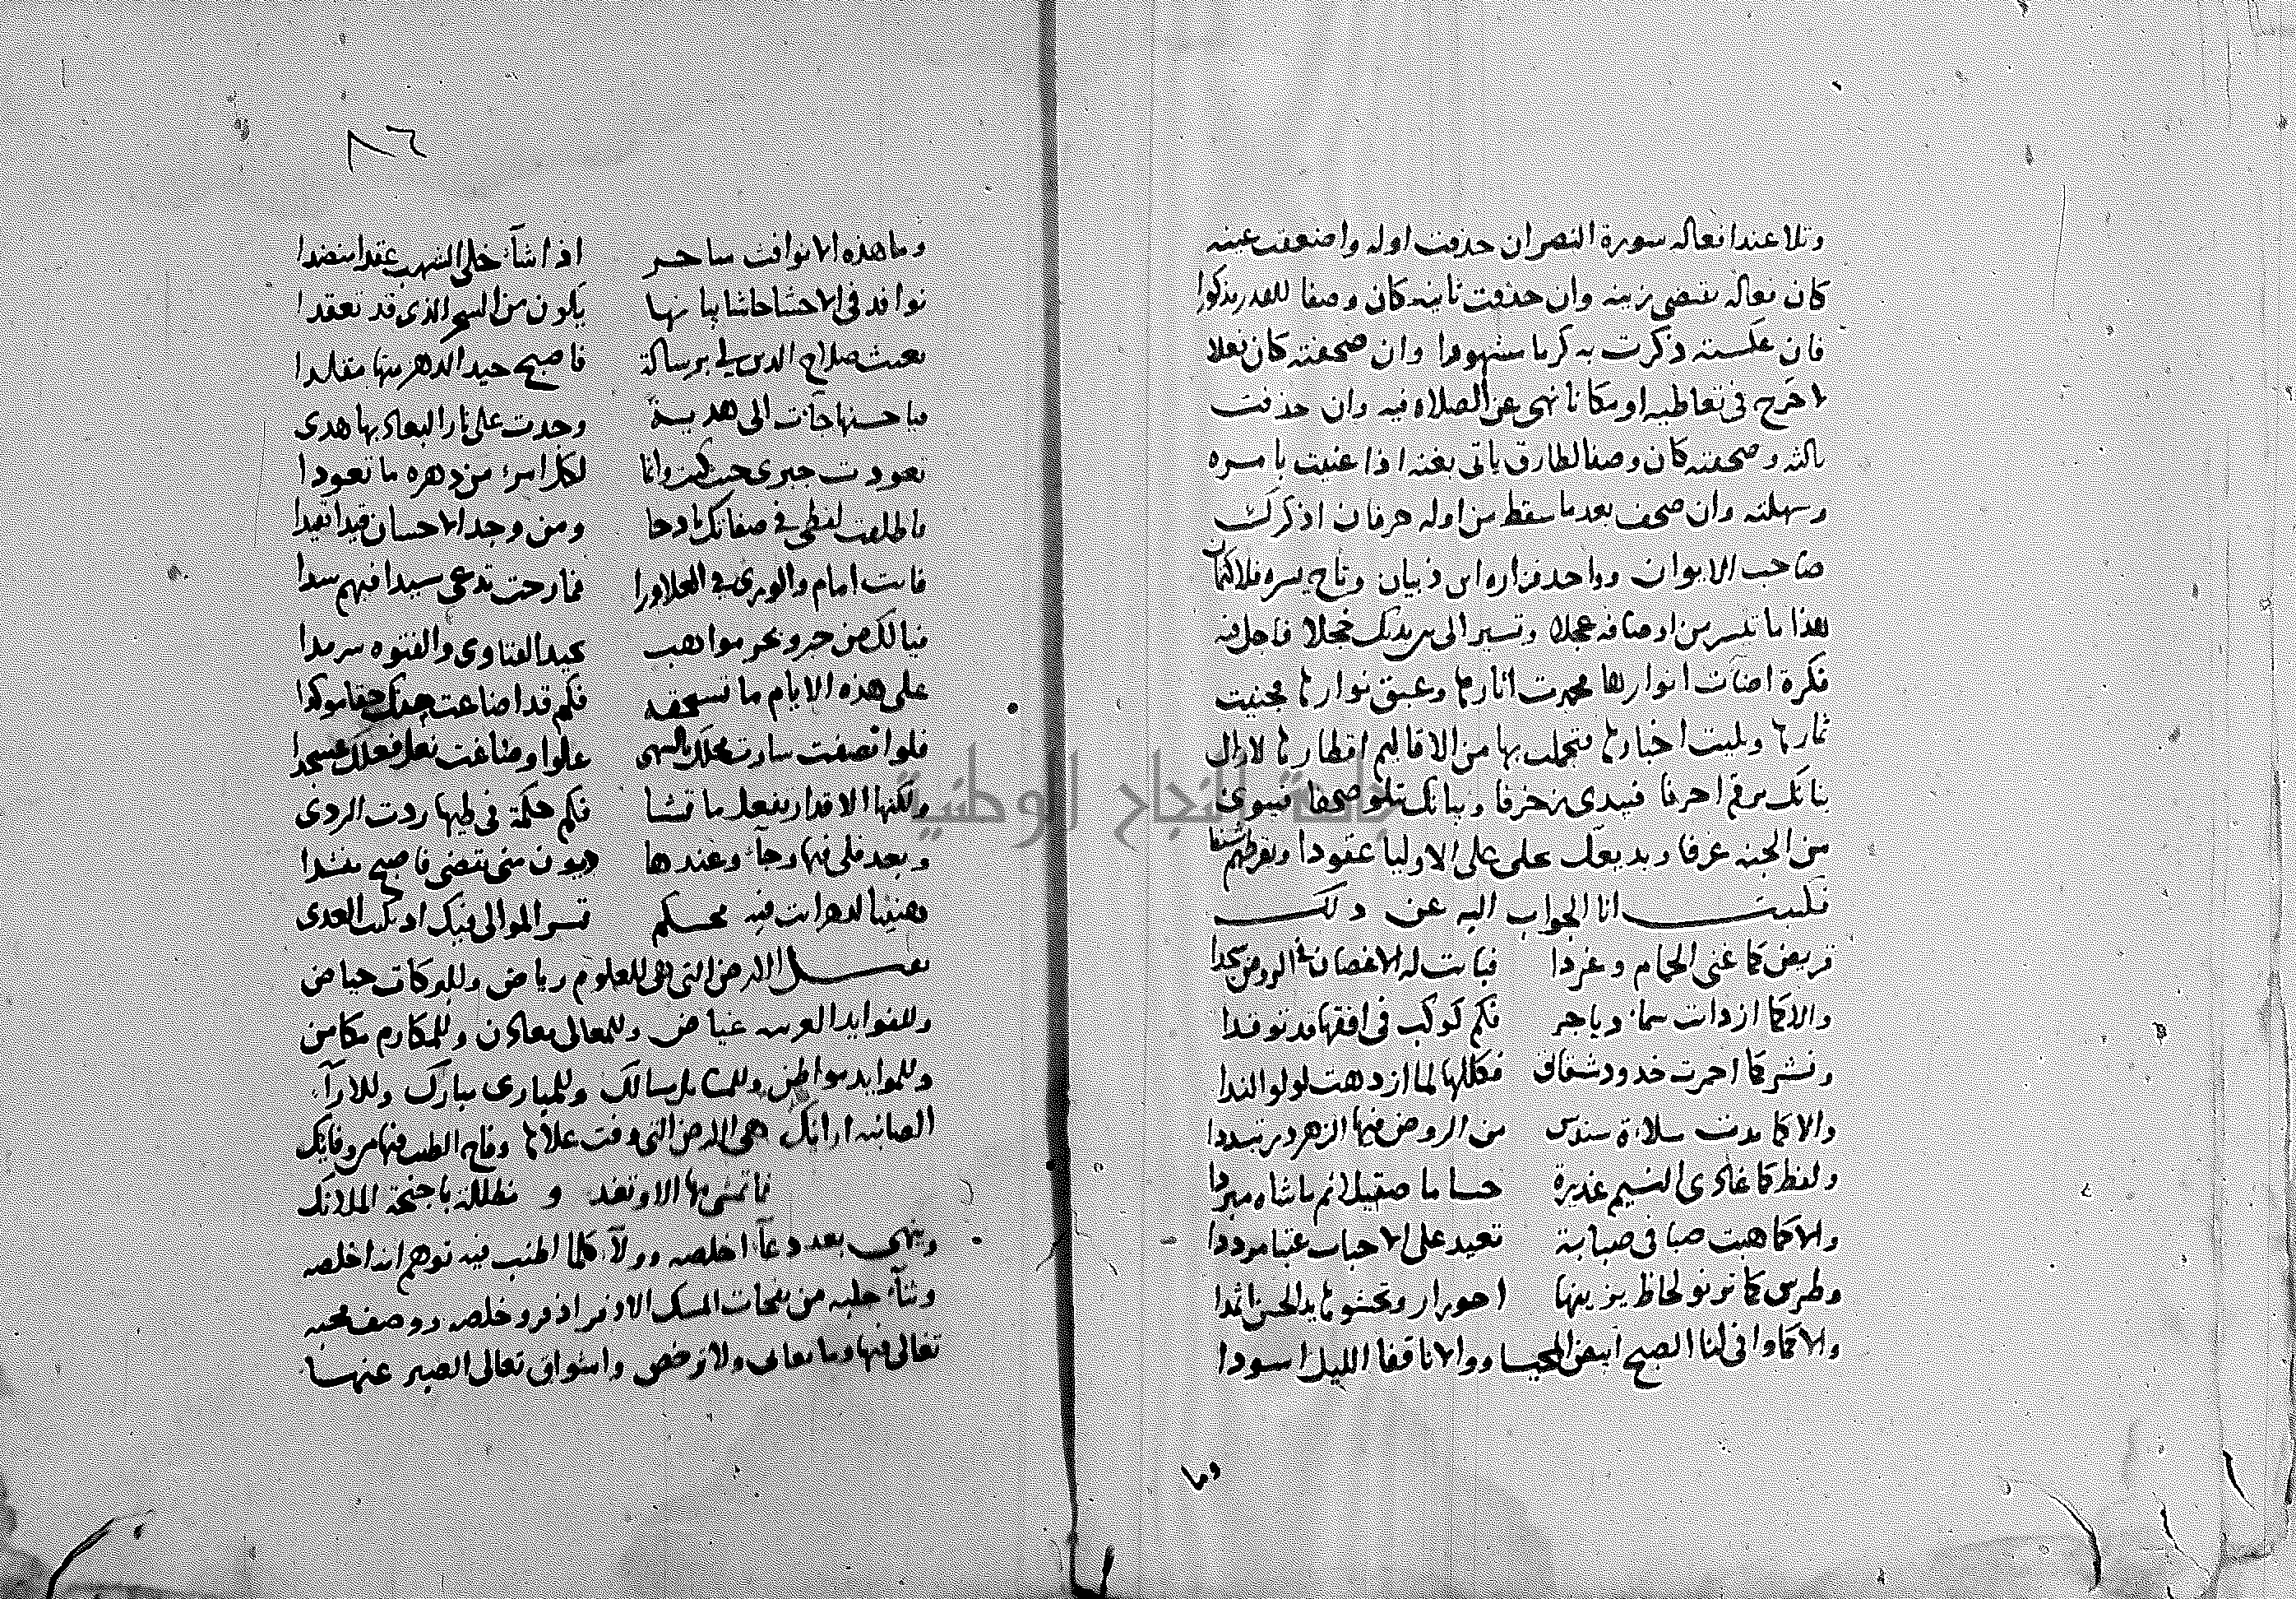 وتلا عند افعاله سورة النصر ان حذفت اوله واضعفت عينه
كان فعاله يقتضى بزينه وان حذفت ثانيه كان وصفا للعدر مذكورا
فان عكسته ذكرت به كريما مشهودا وان صحفته كان فعلا
لا حرج فى تعاطيه او مكانا نهى عن الصلاة فيه وان حذفت
ثالثه وصحفته كان وصفا لطارق ياتى بغته اذا عنيت بامره
وسهلته وان صحف بعد ما سقط من اوله حرفان اذكرك
صاحب الايوان وواحد فزاره ابن ذبيان وتاج يسره فلا كتمان
هذا ما تيسر من اوصافه عجلا وتسير الى بين يديك خجلا فاجل فيه
فكرة اضات انوارها فبهرت اثارها وعبق نوارها فجنيت
ثمارها وتليت اخبارها فتجلب بها من الاقاليم اقطارها لا زال
بنانك يرقم احرفا فيبدى زخرفا وبيانك يتلو صحفا فيبوى
من الجنه غرفا وبديعك يملى على الاوليا عقودا ويقرطهم شنفا
فكتبت انا الجواب اليه عن ذلك
قريض كما غنى الحمام وغردا فباتت له الاغصان فى الروض سجدا
والا كما ازدانت سماء دياجر فكم كوكب فى افقها قد توقدا
ونشر كما احمرت خدود شقائق فكللها لما ازدهت لولو الندا
والا كما مدت ملاءة سندس من الروض فيها الزهر در تبددا
ولفظ كما غادى النسيم غديرة حساما صقيلا ثم ماشاه مبردا
والا كما هبت صبا فى صبابة تعيد على الاحباب عتبا مرددا
وطرس كما ترنو لحاظ يزينها احورار وتحشوها يد الحسن اثمدا
والا كما وافى لنا الصبح ابيض المحيا ووالانا قفا الليل اسودا
وما
٨٦
وما هذه الا نوافث ساحر اذا شاء خلى الشهب عقدا منضدا
نوافذ فى الاحشا حاشا بيانها يكون من السحر الذى قد تعقدا
بعثت صلاح الدين لى برسالة فاصبح جيد الدهر منها مقلدا
فيا حسنها جاءت الى هدية وجدت على نار البعاد بها هدى
تعودت جبرى حيث كنت وانما لكل امرء من دهره ما تعودا
فاطلقت لفظى فى صفاتك مادحا ومن وجد الاحسان قيدا تقيدا
فانت امام والورى فى العلا ورا فما رحت تدعى سيدا فيهم سدا
فيا لك من حبر وبحر مواهب بحيد الفتاوى والفتوه سرمدا
على هذه الايام ما تستحقه فكم قد اضاعت حقا موكدا
فلو انصفت سارت بمحلك بالسهى علوا وصاغت نعل فعلك عسجدا
ولكنها الاقدار يفعل ما تشا فكم حكمة فى طيها ردت الردى
وبعد فلى فيها رجاء وعندها ديون متى تقضى فاصبح منشدا
هنيئا لدهر انت فيه محكم تسر الموالى فيك اذ تكبت العدى
يقبل الارض التى هى للعلوم رياض وللبركات حياض
وللفوايد العربيه غياض وللمعالى معادن وللمكارم مكامن
وللموايد مواطن وللمامل مسالك وللمبارى مبارك وللاراء
الصائبه ارائك هى الارض التى وفت علاها وفاح الطيب فيها من وفايك
فاتمشى بها الا وتغد و مظللة باجنحة الملائك
وينهى بعد دعاء اخلصه وولاء كلما اطنب فيه توهم انه اخلصه
وثناء جلبه من نفحات المسك الاذفر اذ فر وخلصه ووصف محبه
تغالى فيها وما تعالى ولا ترخص واشواق تعالى الصبر عنها